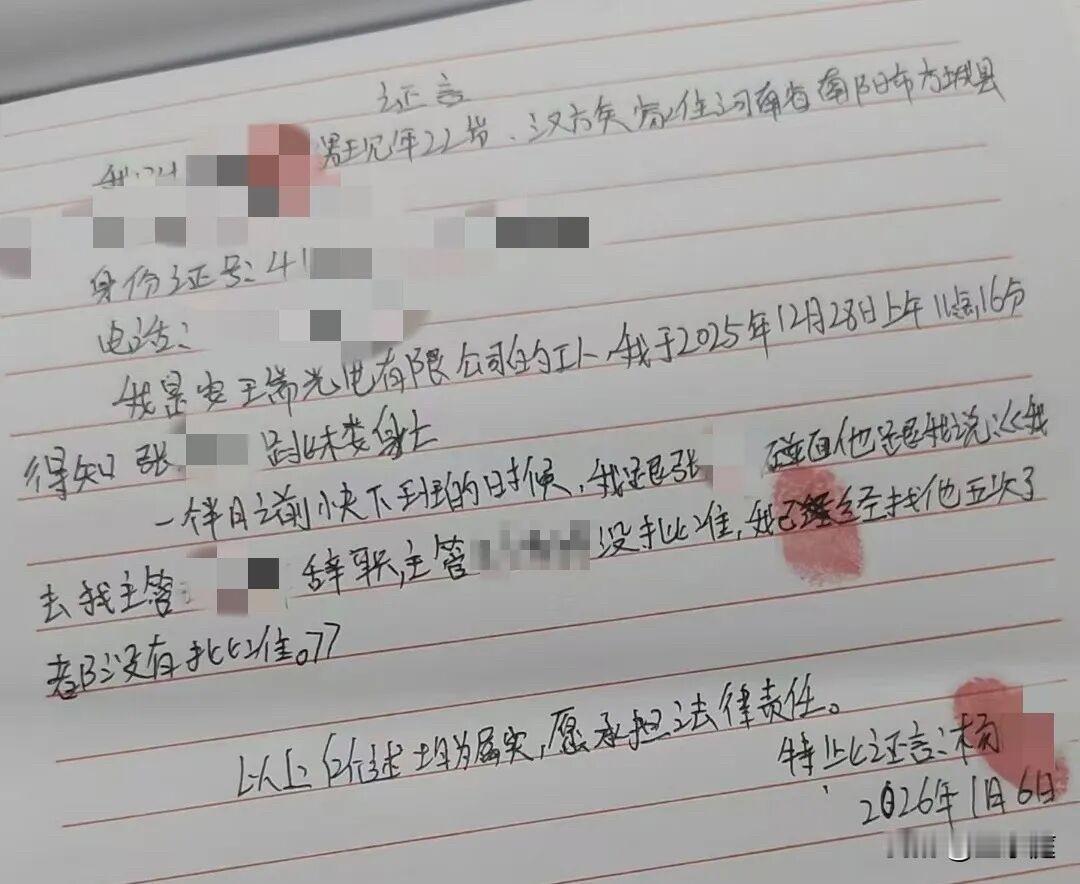 证言
我叫 男现年22岁、汉族家住河南省南阳市方城县
身份证号:41
电话:
我是安王端光电有限公司的工人、我于2025年12月28日上午11点16分
得知张 跳楼类身亡
一个半月之前小夫下班的时候,我跟张 碰面他跟我说:《我
去找主管 辞职,主管 没批准,我已经找他五次了
都没有批准。77
以上所述均为属实,愿承担法律责任。
特此证言:杨
2026年1月6日